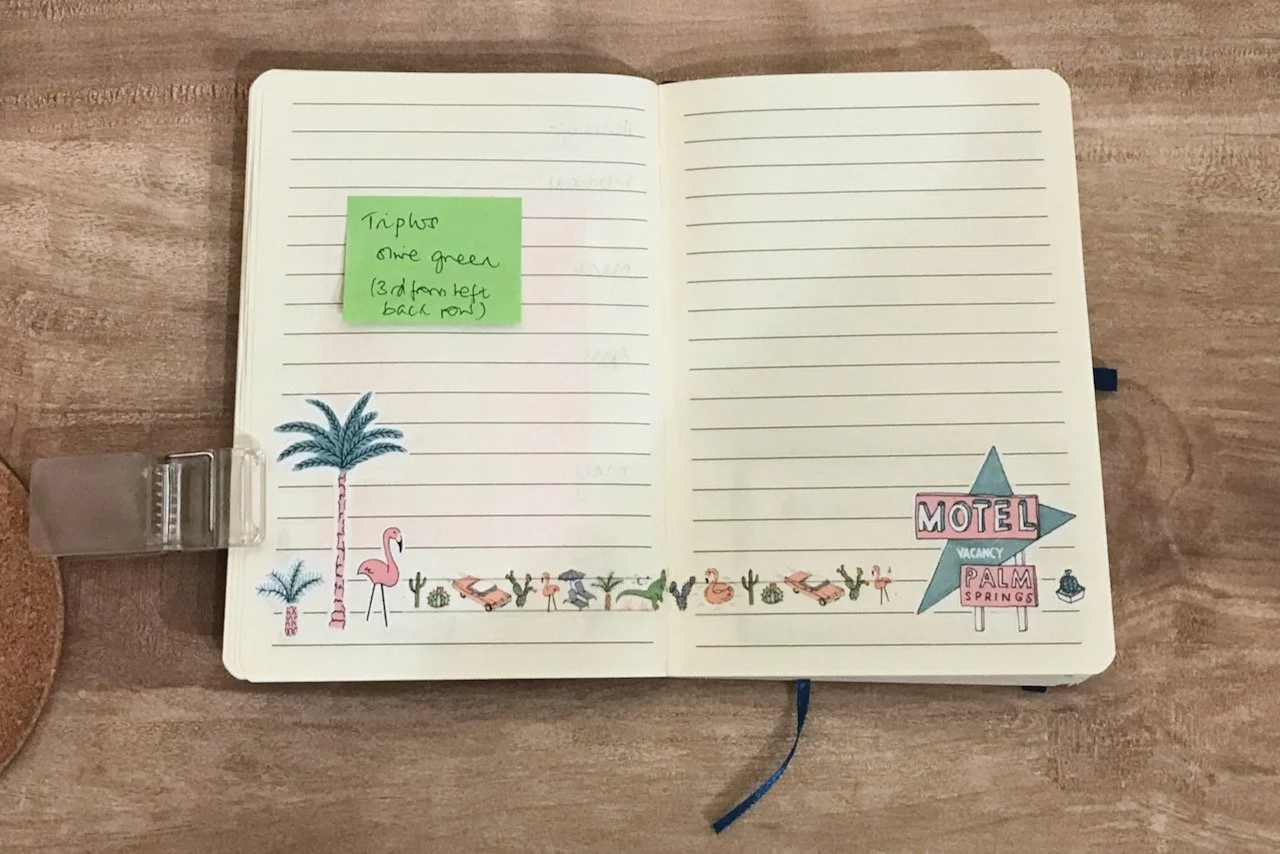 Triplus
olive green
(3rd from left
back row)
MOTEL
VACANCY
PALM
SPRINGS